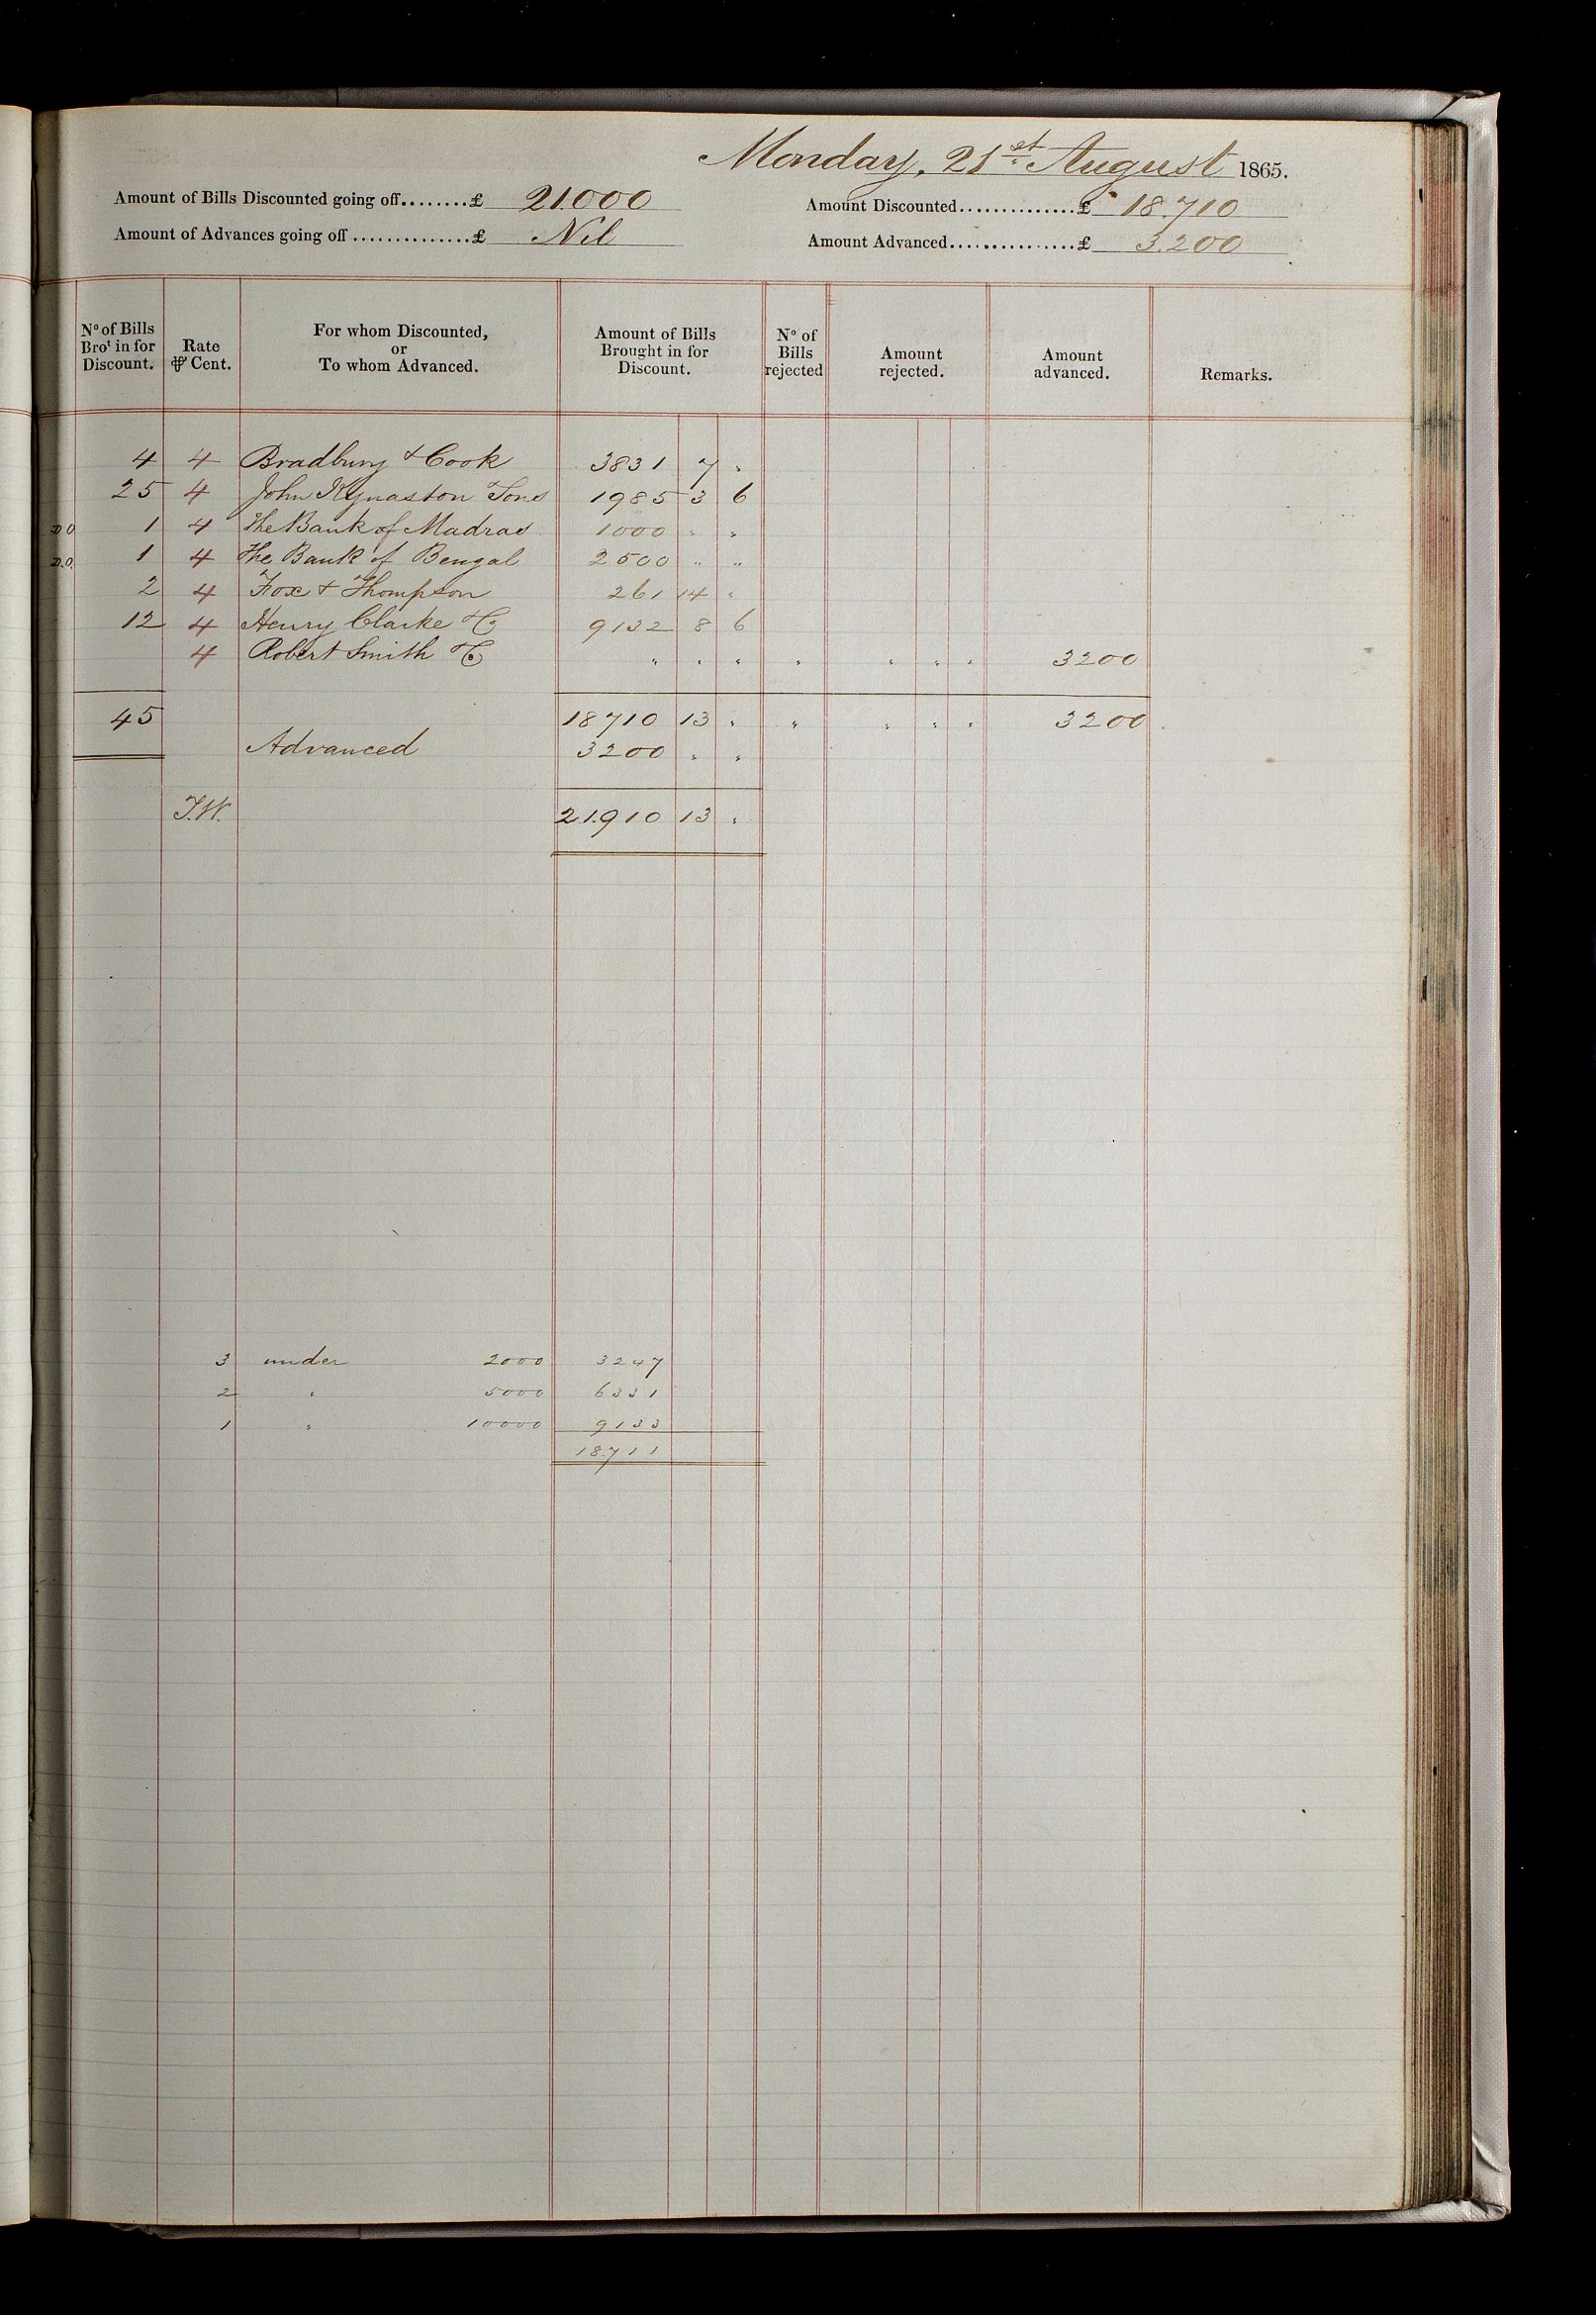 Monday, 21st August 1865.
Amount of Bills Discounted going off........£ 21.000
Amount Discounted..............£ 18.710
Amount of Advances going off...............£ Nil
Amount Advanced...............£ 3.200
No of Bills Brot in for Discount.
Rate ⅌ Cent.
For whom Discounted, or To whom Advanced.
Amount of Bills Brought in for Discount.
No of Bills rejected
Amount rejected.
Amount advanced.
Remarks.
4 4 Bradbury & Cook 3831 7 "
25 4 John Kynaston Sons 1985 3 6
D.O. 1 4 The Bank of Madras 1000 " "
D.O. 1 4 The Bank of Bengal 2500 " "
2 4 Fox & Thompson 261 14 "
12 4 Henry Clarke & Co 9132 8 6
4 Robert Smith & Co " " " " " " " 3200
45 18710 13 " " " " " 3200
Advanced 3200 " "
J.W. 21.910 13 "
3 under 2000 3247
2 " 5000 6331
1 " 10000 9133
18.711